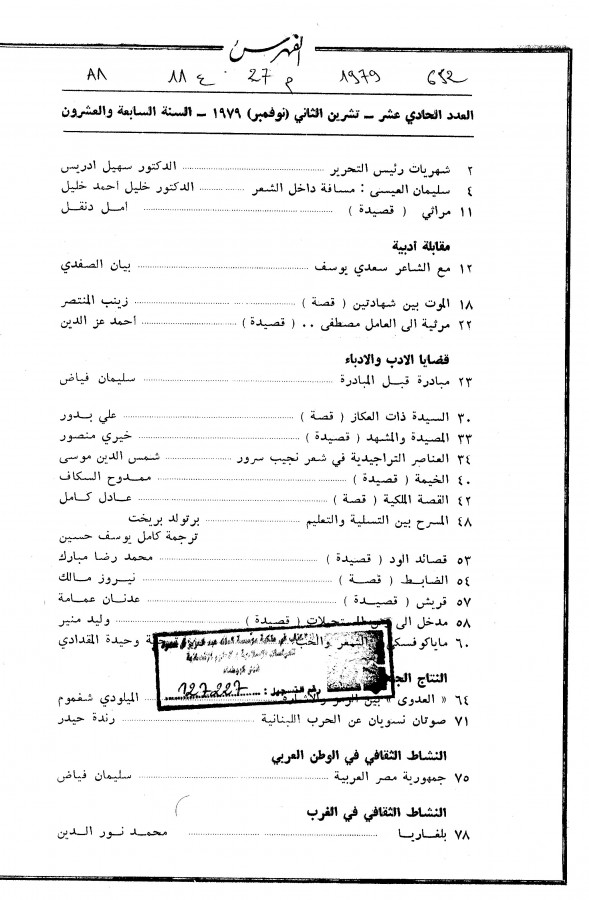 الفهرس
٨٨ ع ١١ م 27 1979 652
العدد الحادي عشر ــ تشرين الثاني (نوفمبر) ١٩٧٩ ــ السنة السابعة والعشرون
٢ شهريات رئيس التحرير الدكتور سهيل ادريس
٤ سليمان العيسى : مسافة داخل الشعر الدكتور خليل احمد خليل
١١ مراثي ( قصيدة ) امل دنقل
مقابلة أدبية
١٢ مع الشاعر سعدي يوسف بيان الصفدي
١٨ الموت بين شهادتين ( قصة ) زينب المنتصر
٢٢ مرثية الى العامل مصطفى .. ( قصيدة ) احمد عز الدين
قضايا الادب والادباء
٢٣ مبادرة قبل المبادرة سليمان فياض
٣٠ السيدة ذات العكاز ( قصة ) علي بدور
٣٣ المصيدة والمشهد ( قصيدة ) خيري منصور
٣٤ العناصر التراجيدية في شعر نجيب سرور شمس الدين موسى
٤٠ الخيمة ( قصيدة ) ممدوح السكاف
٤٢ القصة الملكية ( قصة ) عادل كامل
٤٨ المسرح بين التسلية والتعليم برتولد بريخت
ترجمة كامل يوسف حسين
٥٣ قصائد الود ( قصيدة ) محمد رضا مبارك
٥٤ الضابط ( قصة ) نيروز مالك
٥٧ قريش ( قصيدة ) عدنان عمامة
٥٨ مدخل الى المستحيلات ( قصيدة ) وليد منير
٦٠ ماياكوفسكي الشعر والحب وحيدة المقدادي
رقم التسجيل : 127227
النتاج
٦٤ « العدوى » بين الميلودي شغموم
٧١ صوتان نسويان عن الحرب اللبنانية رندة حيدر
النشاط الثقافي في الوطن العربي
٧٥ جمهورية مصر العربية سليمان فياض
النشاط الثقافي في الغرب
٧٨ بلغاريا محمد نور الدين